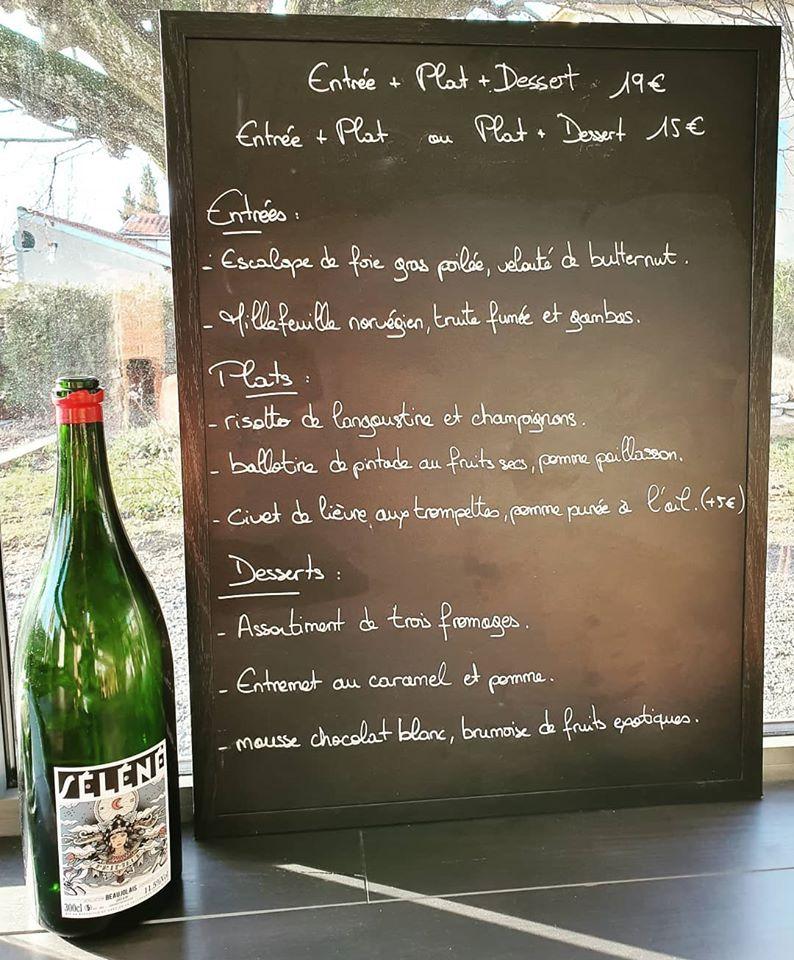 Entrée + Plat + Dessert 19€
Entrée + Plat ou Plat + Dessert 15€
Entrées :
- Escalope de foie gras poilée, velouté de butternut.
- Millefeuille norvégien, truite fumée et gambas.
Plats :
- risotto de langoustine et champignons.
- ballotine de pintade au fruits secs, pomme paillasson.
- Civet de lièvre aux trompettes, pomme purée à l'ail. (+5€)
Desserts :
- Assortiment de trois fromages.
- Entremet au caramel et pomme.
- mousse chocolat blanc, brunoise de fruits exotiques.
SÉLÉNÉ
BEAUJOLAIS
300cl